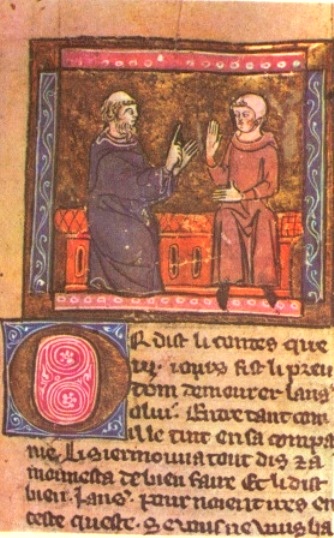 OR dist li contes que
.iij. iours fist li preu
dom demourer lans.
o lui. Entre tant com
il le tint en sa compai
nie. li siermouna tout dis z a
mounesta de bien faire. Et li dist
bien. lans. pour noient ires en
ceste queste. Se vous ne vous